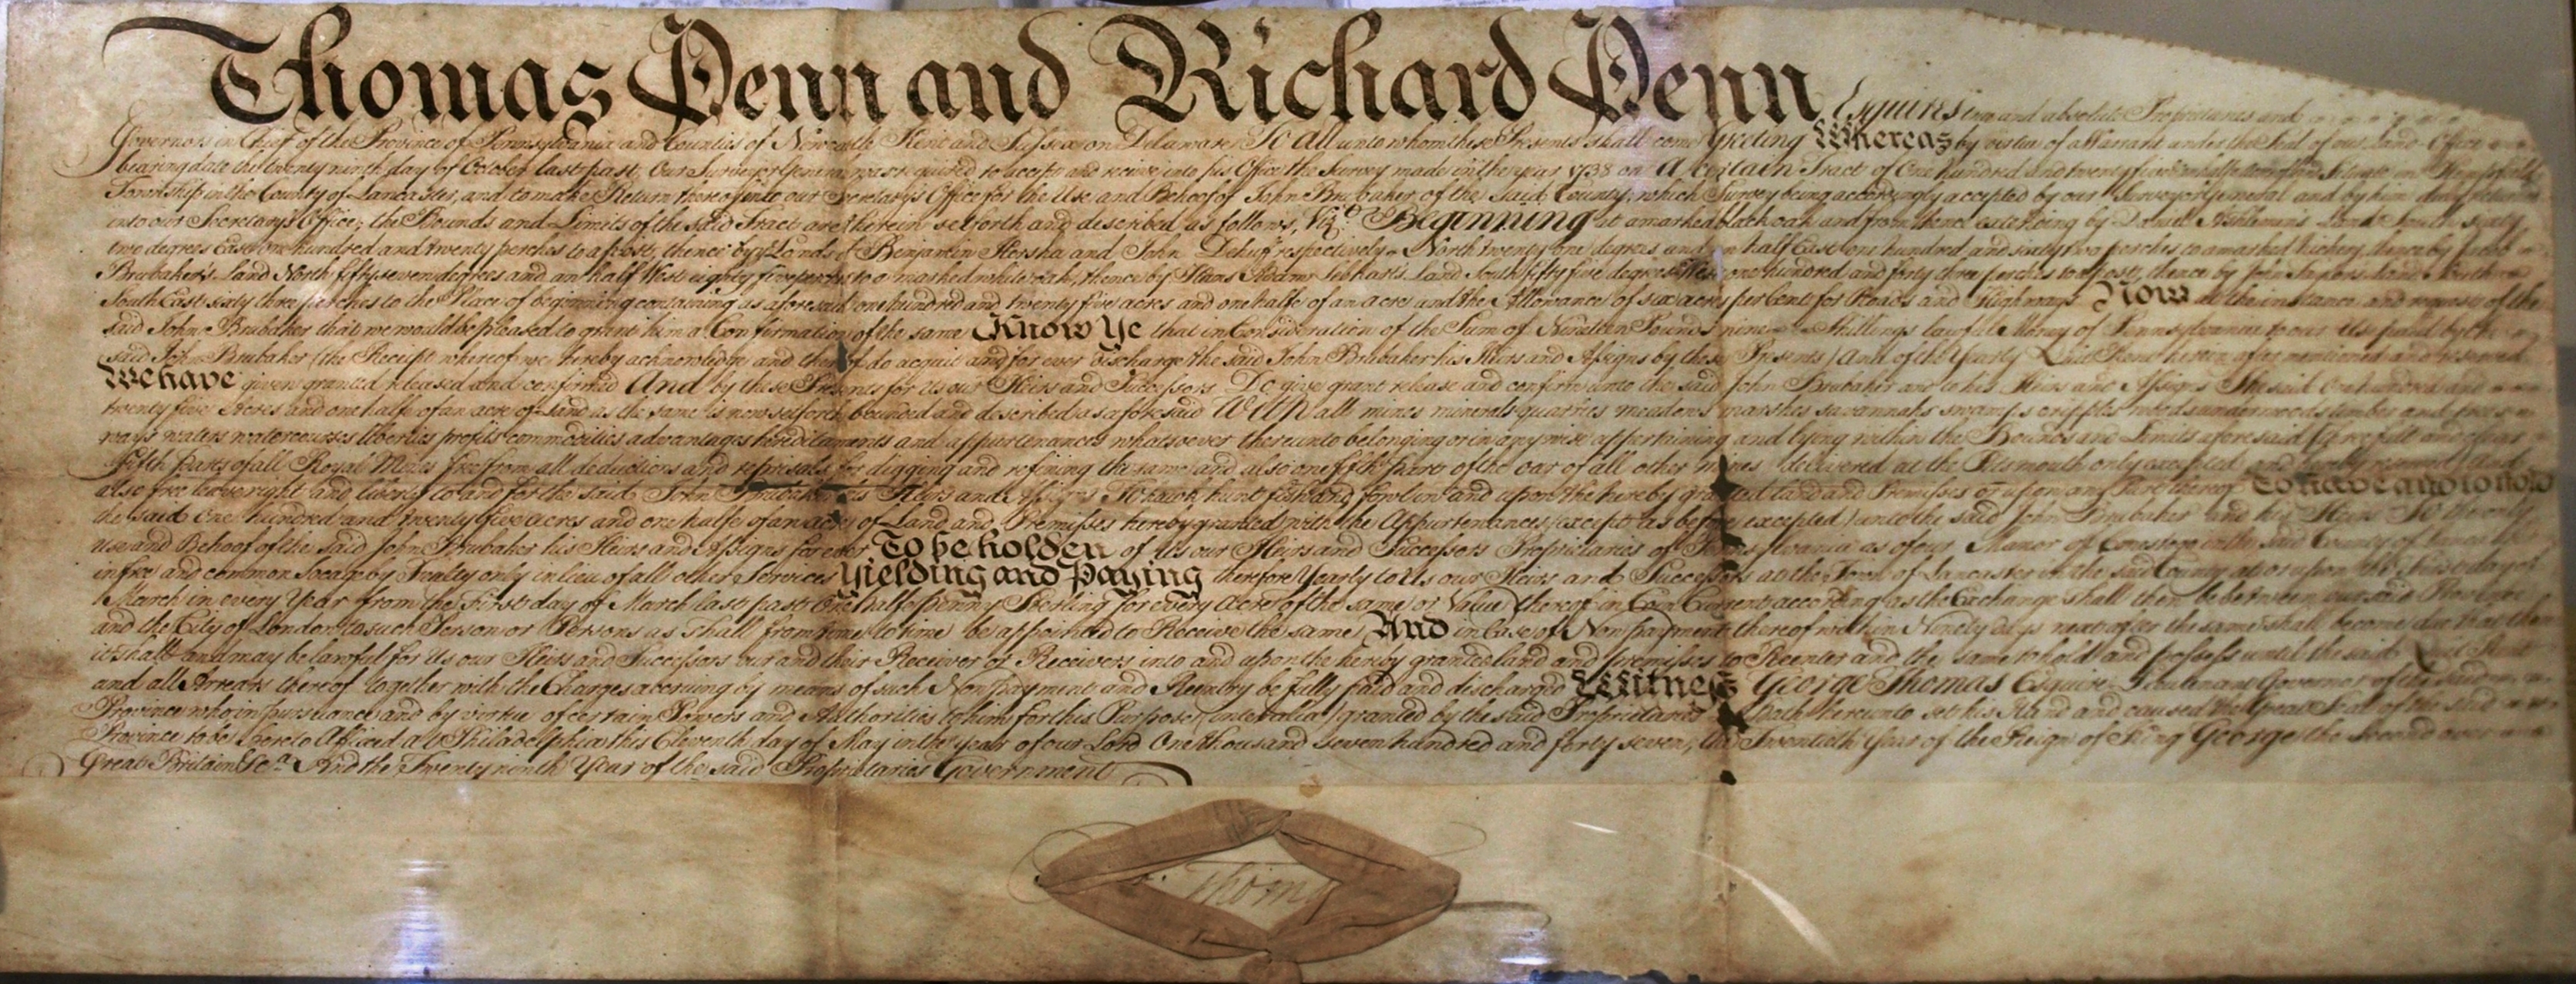 Thomas Penn and Richard Penn Esquires true and absolute Proprietaries and
Governors in Chief of the Province of Pennsylvania and Counties of Newcastle Kent and Sussex on Delaware To All unto whom these Presents shall come Greeting Whereas by vertue of a Warrant under the Seal of our Land Office
bearing date the twenty ninth day of October last past Our Surveyor General was required to accept and receive into his Office the Survey made in the year 1738 on A certain Tract of One hundred and twenty five in
Township in the County of Lancaster, and to make Return thereof into our Secretary's Office for the Use and Behoof of John Brubaker of the said County, which Survey being accordingly accepted by our Surveyor General and by him duly
into our Secretary's Office; the Bounds and Limits of the said Tract are therein set forth and described as follows, Viz. Beginning at a marked black oak and from thence extending by Land South sixty
two degrees East one hundred and twenty perches to a post, thence by Lands of Benjamin Hersha and John respectively North twenty one degrees and an half East one hundred and sixty two perches to a marked hickery thence by Jacob
Brubaker's Land North fifty seven degrees and an half West eighty five perches to a marked white oak, thence by Hans Land South fifty five degrees West one hundred and forty three perches to a post, thence by John land
South East sixty three perches to the Place of beginning containing as aforesaid one hundred and twenty five acres and one halfe of an acre and the Allowance of six acres per Cent for Roads and Highways Now at the instance and request of the
said John Brubaker that we would be pleased to grant him a Confirmation of the same Know Ye that in Consideration of the Sum of Nineteen Pounds nine Shillings lawful Money of Pennsylvania to our Use paid by the
said John Brubaker (the Receipt whereof we hereby acknowledge and thereof do acquit and for ever discharge the said John Brubaker his Heirs and Assigns by these Presents) And of the Yearly Quit Rent herein after mentioned and reserved
We have given granted released and confirmed And by these Presents for Us our Heirs and Successors Do give grant release and confirm unto the said John Brubaker and to his Heirs and Assigns The said One hundred and
twenty five Acres and one halfe of an acre of Land as the same is now set forth bounded and described as aforesaid With all mines minerals quarries meadows marshes savannahs swamps cripples woods underwoods timber and trees
ways waters watercourses liberties profits commodities advantages hereditaments and appurtenances whatsoever thereunto belonging or in any wise appertaining and lying within the Bounds and Limits aforesaid (three full and clear
fifth parts of all Royal Mines free from all deductions and reprisals for digging and refining the same and also one fifth part of the oar of all other mines delivered at the Pits mouth only excepted and hereby reserved) And
also free leave right and liberty to and for the said John Brubaker his Heirs and Assigns To hawk hunt fish and fowl in and upon the hereby granted land and Premises or upon any Part thereof To have and to hold
the said One hundred and twenty five acres and one halfe of an acre of Land and Premisses hereby granted with the Appurtenances (except as before excepted) unto the said John Brubaker and his Heirs To the only
Use and Behoof of the said John Brubaker his Heirs and Assigns for ever To be holden of Us our Heirs and Successors Proprietaries of Pennsylvania as of our Manor of Conestogo in the said County of Lancaster
in free and common Socage by Fealty only in lieu of all other Services Yielding and Paying therefore Yearly to Us our Heirs and Successors at the Town of Lancaster in the said County at or upon the first day of
March in every Year from the First day of March last past One halfe penny Sterling for every Acre of the same or Value thereof in Coin Current according as the Exchange shall then be between our said Province
and the City of London to such Person or Persons as shall from time to time be appointed to Receive the same And in Case of Non payment thereof within Ninety days next after the same shall become due that then
it shall and may be lawful for Us our Heirs and Successors our and their Receiver or Receivers into and upon the hereby granted land and premisses to Reenter and the same to hold and possess until the said Quit Rent
and all Arrears thereof together with the Charges accruing by means of such Non payment and Reentry be fully paid and discharged Witness George Thomas Esquire Lieutenant Governor of the said
Province who in pursuance and by virtue of certain Powers and Authorities to him for this Purpose (inter alia) granted by the said Proprietaries Hath hereunto set his Hand and caused the Great Seal of the said
Province to be hereto Affixed at Philadelphia this Eleventh day of May in the year of our Lord One thousand seven hundred and forty seven, the Twentieth Year of the Reign of King George the Second over
Great Britain &c.ª And the Twenty ninth Year of the said Proprietaries Government
Thoma